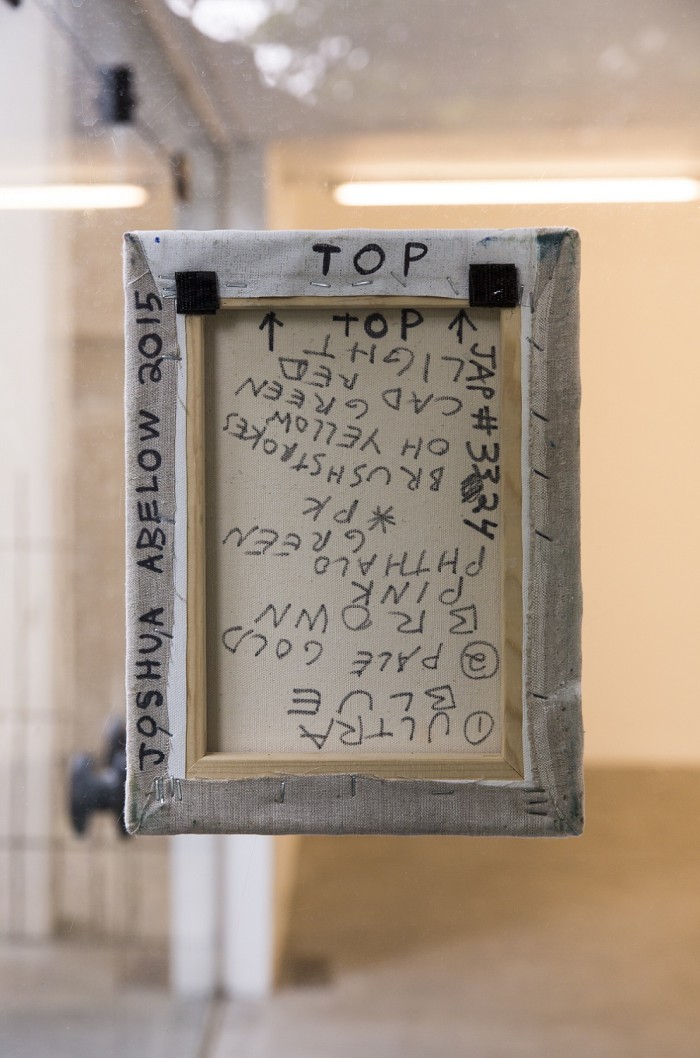 TOP
TOP
JOSHUA ABELOW 2015
JAP # 3324
① ULTRA
BLUE
② PALE GOLD
BROWN
PINK
PHTHALO
GREEN
* PK
BRUSHSTROKES
OH YELLOW
CAD GREEN
RED
LIGHT